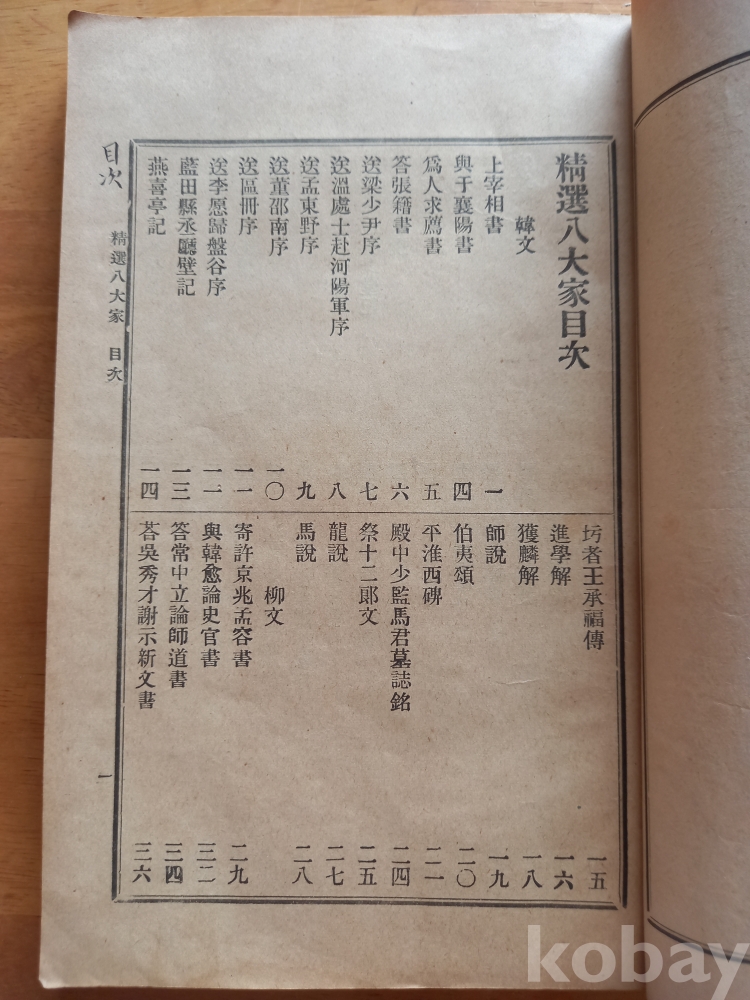 精選八大家目次
韓文
上宰相書 一
與于襄陽書 四
爲人求薦書 五
答張籍書 六
送梁少尹序 七
送溫處士赴河陽軍序 八
送孟東野序 九
送董邵南序 一〇
送區冊序 一一
送李愿歸盤谷序 一一
藍田縣丞廳壁記 一三
燕喜亭記 一四
圬者王承福傳 一五
進學解 一六
獲麟解 一八
師說 一九
伯夷頌 二〇
平淮西碑 二一
殿中少監馬君墓誌銘 二四
祭十二郞文 二五
龍說 二七
馬說 二八
柳文
寄許京兆孟容書 二九
與韓愈論史官書 三二
答常中立論師道書 三四
荅吳秀才謝示新文書 三六
精選八大家 目次 一
目次
kobay